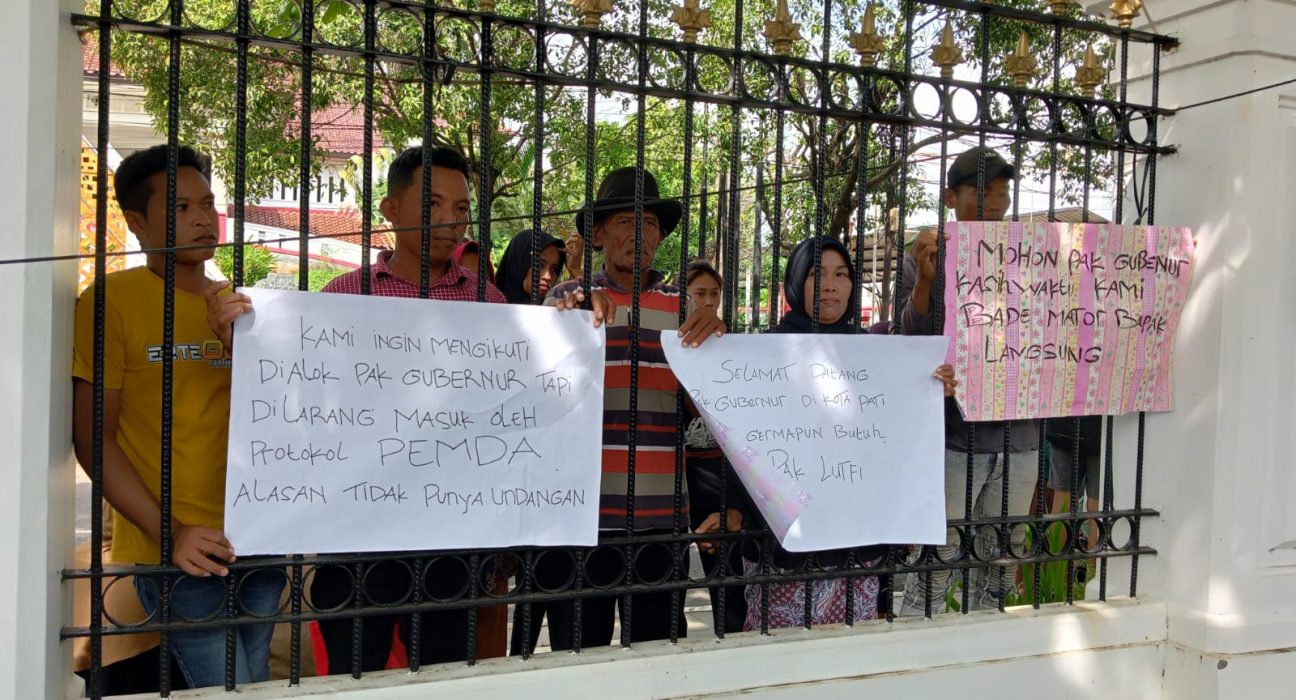 KAMI INGIN MENGIKUTI
DiALOK PAK GUBERNUR TAPI
DiLARANG MASUK OLEH
PROTOKOL PEMDA
ALASAN TIDAK PUNYA UNDANGAN
SELAMAT DATANG
PAK GUBERNUR Di KOTA PATI
GERMAPUN Butuh
PAK LUTFI
MOHON PAK GUBENUR
KASIH WAKTU KAMI
BADE MATOR BAPAK
LANGSUNG